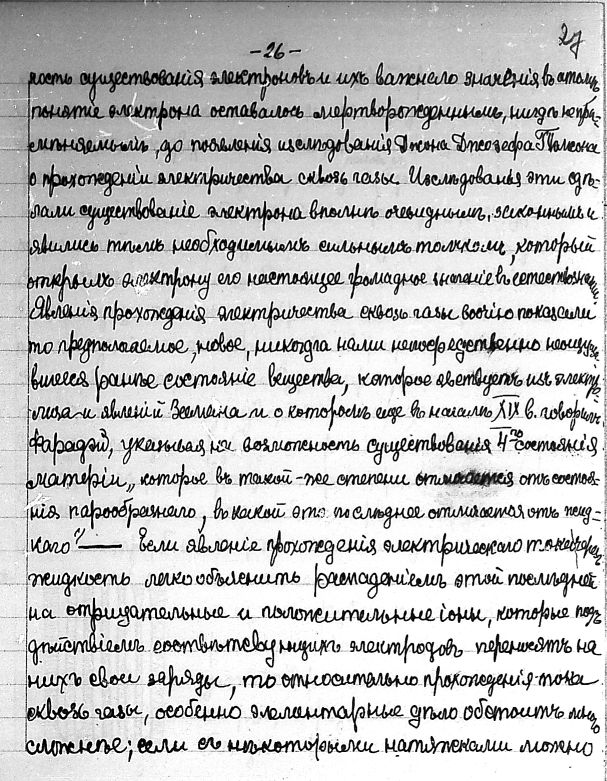 27
-26-
ность существованія электроновъ и ихъ важнаго значенія въ атомѣ
понятіе электрона оставалось мертворожденнымъ, нигдѣ не при-
мѣняемымъ, до появленія изслѣдованія Джона Джозефа Томсона
о прохожденіи электричества сквозь газы. Изслѣдованья эти сдѣ-
лали существованіе электрона вполнѣ очевиднымъ, законнымъ и
явились тѣмъ необходимымъ сильнымъ толчкомъ, который
открылъ электрону его настоящее громадное значеніе въ естествознаніи.
Явленія прохожденія электричества сквозь газы воочію показали
то предполагаемое, новое, никогда нами непосредственно
вшееся ранѣе состояніе вещества, которое явствуетъ изъ электро-
лиза и явленій Зеемана и о которомъ еще въ началѣ XIX в. говорилъ
Фарадэй, указывая на возможность существованія 4го состоянія
матеріи „которое въ такой-же степени отличается отъ состоя-
нія парообразнаго, въ какой это послѣднее отличается отъ жид-
каго" — Если явленіе прохожденія электрическаго тока черезъ
жидкость легко объяснить распаденіемъ этой послѣдней
на отрицательные и положительные іоны, которые подъ
дѣйствіемъ соотвѣтствующихъ электродовъ переносятъ на
нихъ свои заряды, то относительно прохожденія тока
сквозь газы, особенно элементарные дѣло обстоитъ много
сложнѣе; если съ нѣкоторыми натяжками можно